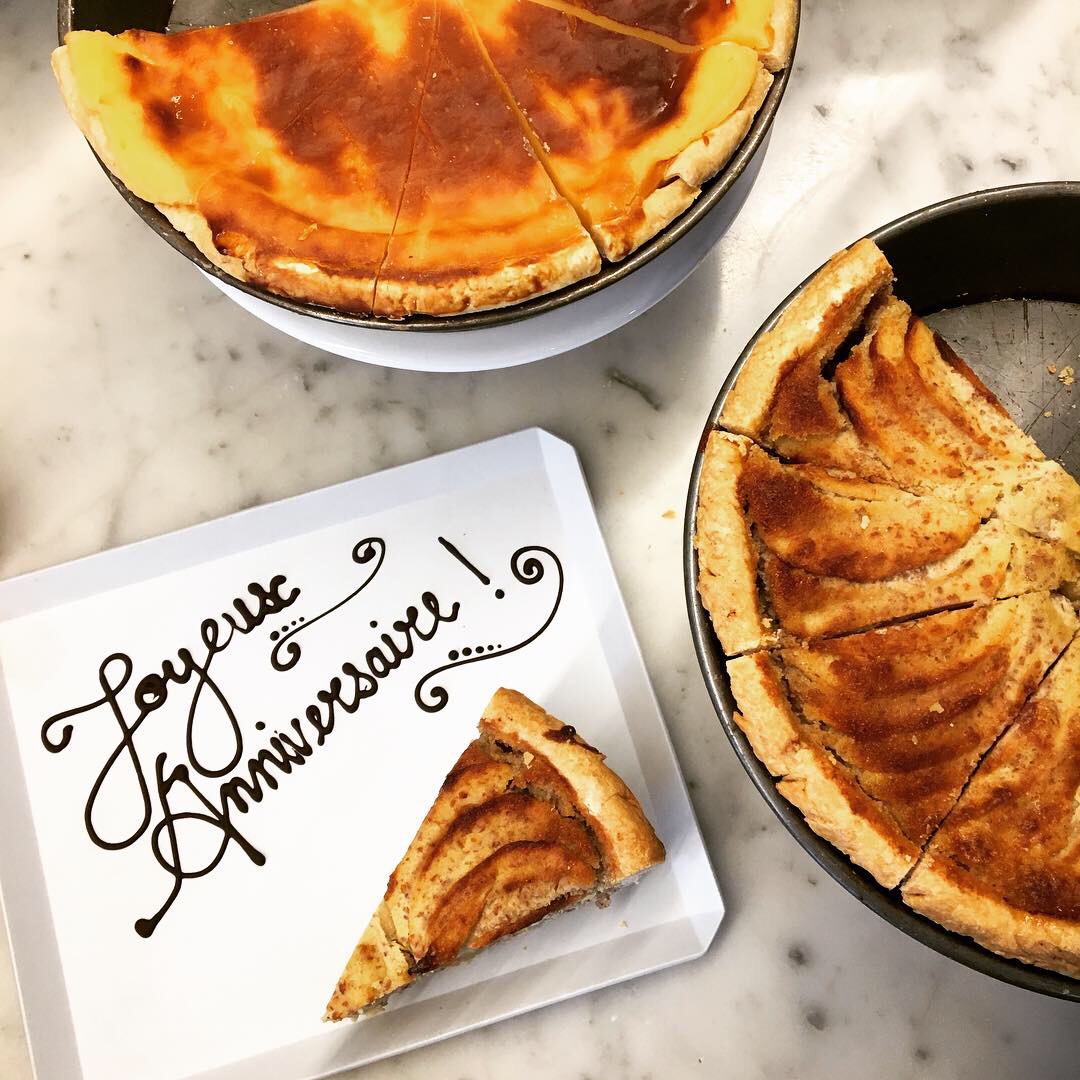 Joyeux
Anniversaire !